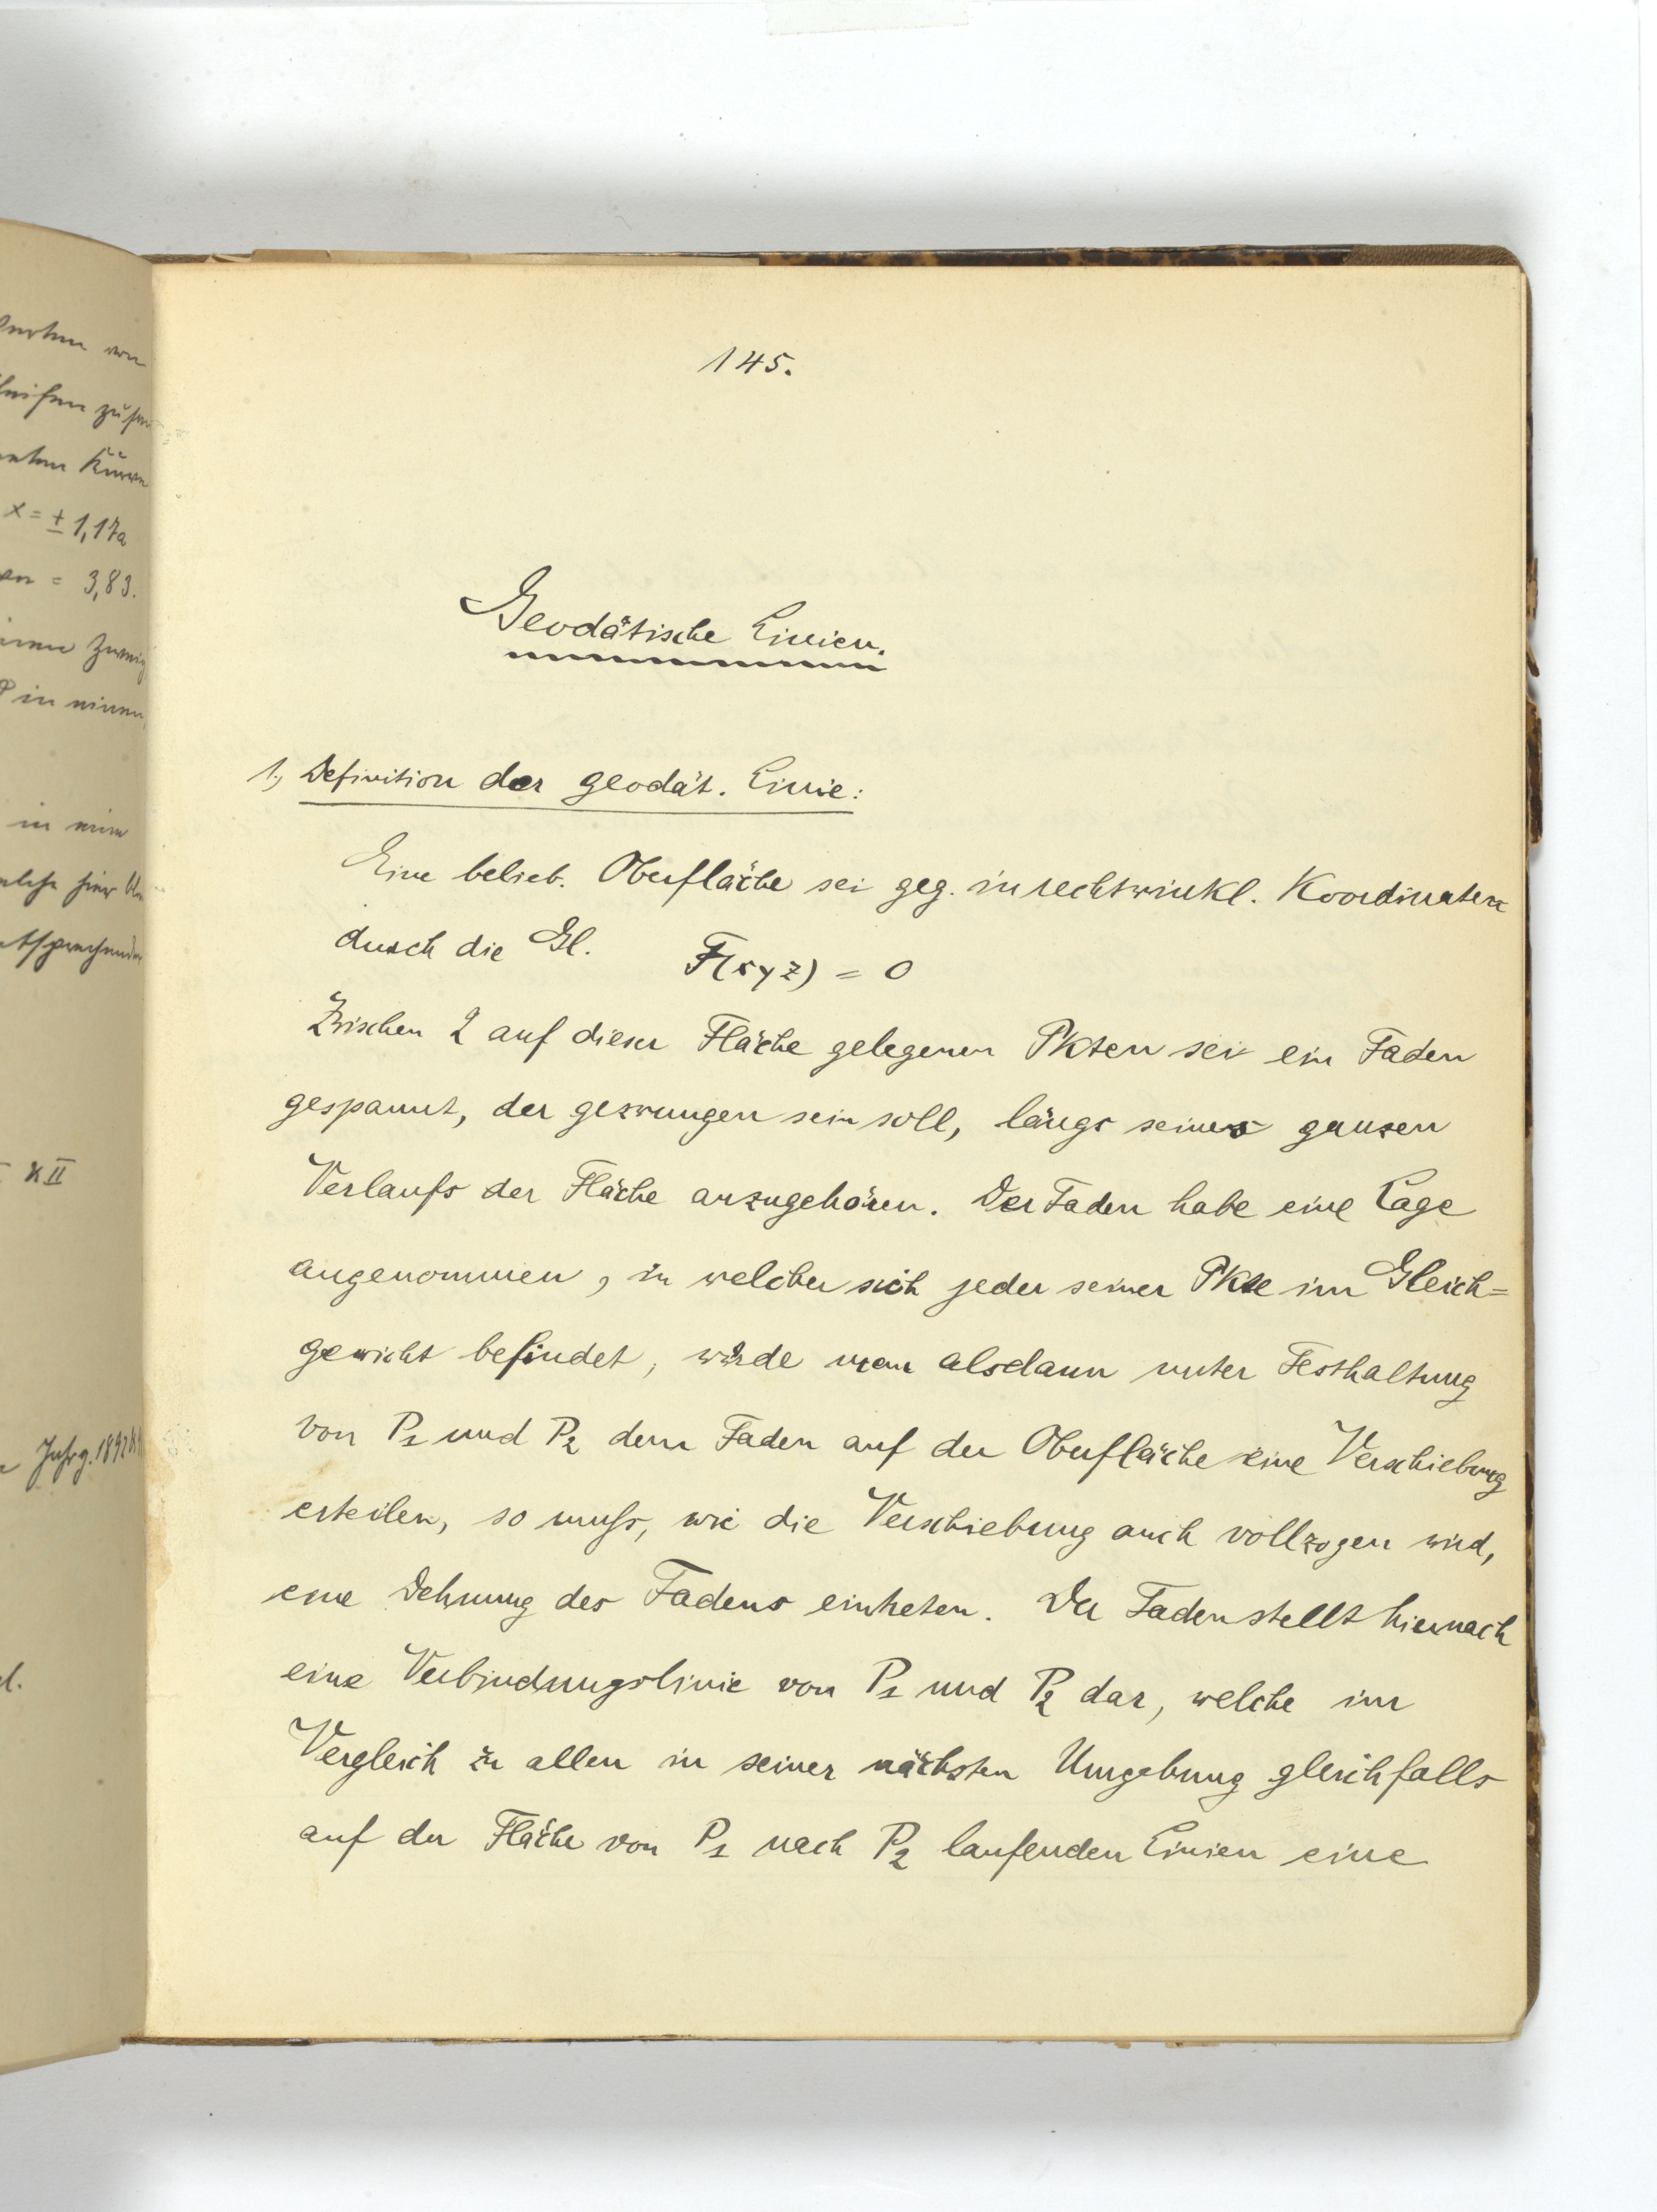 145.
Geodätische Linien.
1, Definition der geodät. Linie:
Eine belieb. Oberfläche sei geg. in rechtwinkl. Koordinaten
durch die Gl. F(xyz) = 0
Zwischen 2 auf dieser Fläche gelegenen Pkten sei ein Faden
gespannt, der gezwungen sein soll, längs seines ganzen
Verlaufs der Fläche anzugehören. Der Faden habe eine Lage
angenommen, in welcher sich jeder seiner Pkte im Gleich=
gewicht befindet, würde man alsdann unter Festhaltung
von P1 und P2 dem Faden auf der Oberfläche eine Verschiebung
erteilen, so muſs, wie die Verschiebung auch vollzogen wird,
eine Dehnung des Fadens eintreten. Der Faden stellt hiernach
eine Verbindungslinie von P1 und P2 dar, welche im
Vergleich zu allen in seiner nächsten Umgebung gleichfalls
auf der Fläche von P1 nach P2 laufenden Linien eine
x = ± 1,17a
= 3,83.
XII
Jahrg. 1892